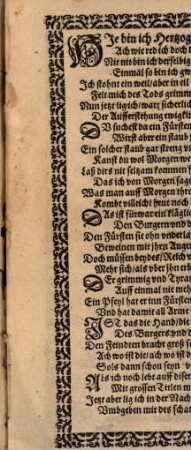 Hie bin ich Hertzog
Ach wie red ich doch
Nie nit bin ich derselbig
Einmal so bin ich
Ich stohnr ein weil/aber in eil
Felt mich des Tods grimm
Nun jetzt lig ich/wart sicherlic
Der Aufferstehung ewigkli
DV suchest da ein Fürsten
Wirst aber ein staub
Ein solcher staub gar streng
Kanst du wol Morgen
Laß dirs nit seltzam kommen f
Das ich von Morgen sage
Was man auff Morgen
Kombt villeicht heut noch
DAs ist fürwar ein klägli
Den Burgern vnd
Den Fürsten sie ohn vnderla
Beweinen mit jhrn Auge
Doch müssen beydes/Reich
Mehr sich/als vber jhn
DEr grimmig vnd Tyran
Auff einmal nit meh
Ein Pfeyl hat er inn Fürsten
Vnd hat damit all Arme
IST das die Hand/die
Des Burgers vnd
Den Feindten bracht groß
Ach wo ist die: ach wo ist
Sols dann schon seyn
Als ich noch lebt auff diser
Mit grossen Titlen
Jetzt aber lig ich in der Nach
Vmbgeben mit des scha